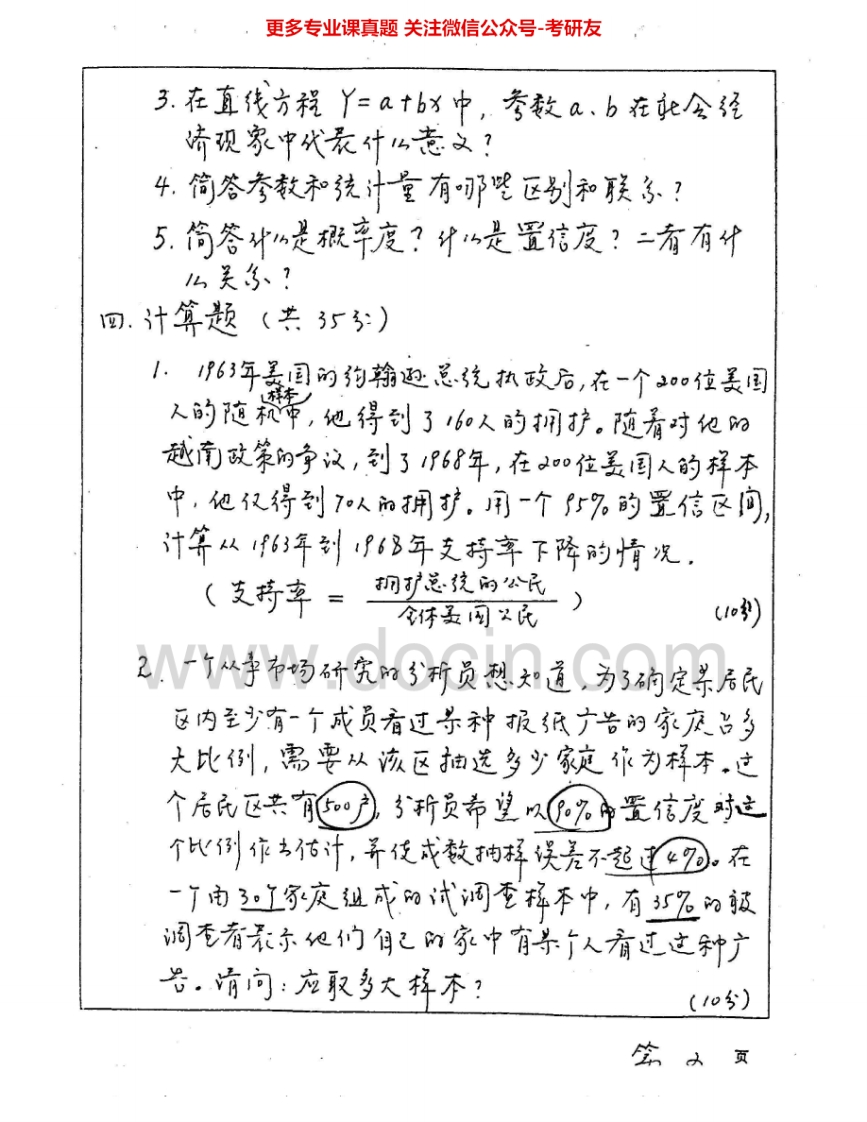 更多专业课真题 关注微信公众号-考研友
3. 在直线方程 Y=a+bx 中，参数 a、b 在社会经
济现象中代表什么意义？
4. 简答参数和统计量有哪些区别和联系？
5. 简答什么是概率度？什么是置信度？二者有什
么关系？
四. 计算题（共35分）
1. 1963年美国的约翰逊总统执政后，在一个200位美国
人的随机样本中，他得到了160人的拥护。随着对他的
越南政策的争议，到了1968年，在200位美国人的样本
中，他仅得到70人的拥护。用一个95%的置信区间，
计算从1963年到1968年支持率下降的情况.
（支持率 = 拥护总统的公民 / 全体美国公民） (10分)
www.docin.com
2. 一个从事市场研究的分析员想知道，为了确定某居民
区内至少有一个成员看过某种报纸广告的家庭占多
大比例，需要从该区抽选多少家庭作为样本。这
个居民区共有500户，分析员希望以90%的置信度对这
个比例作出估计，并使成数抽样误差不超过4%。在
一个由30个家庭组成的试调查样本中，有35%的被
调查者表示他们自己的家中有某个人看过这种广
告。请问：应取多大样本？ (10分)
第 2 页